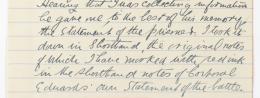 Hearing that I was collecting information
he gave me to the best of his memory
the statement of the prisoner. I took it
down in Shorthand, the original notes
of which I have marked with red ink
in the shorthand notes of Corporal
Edwards' own Statement of the battle.